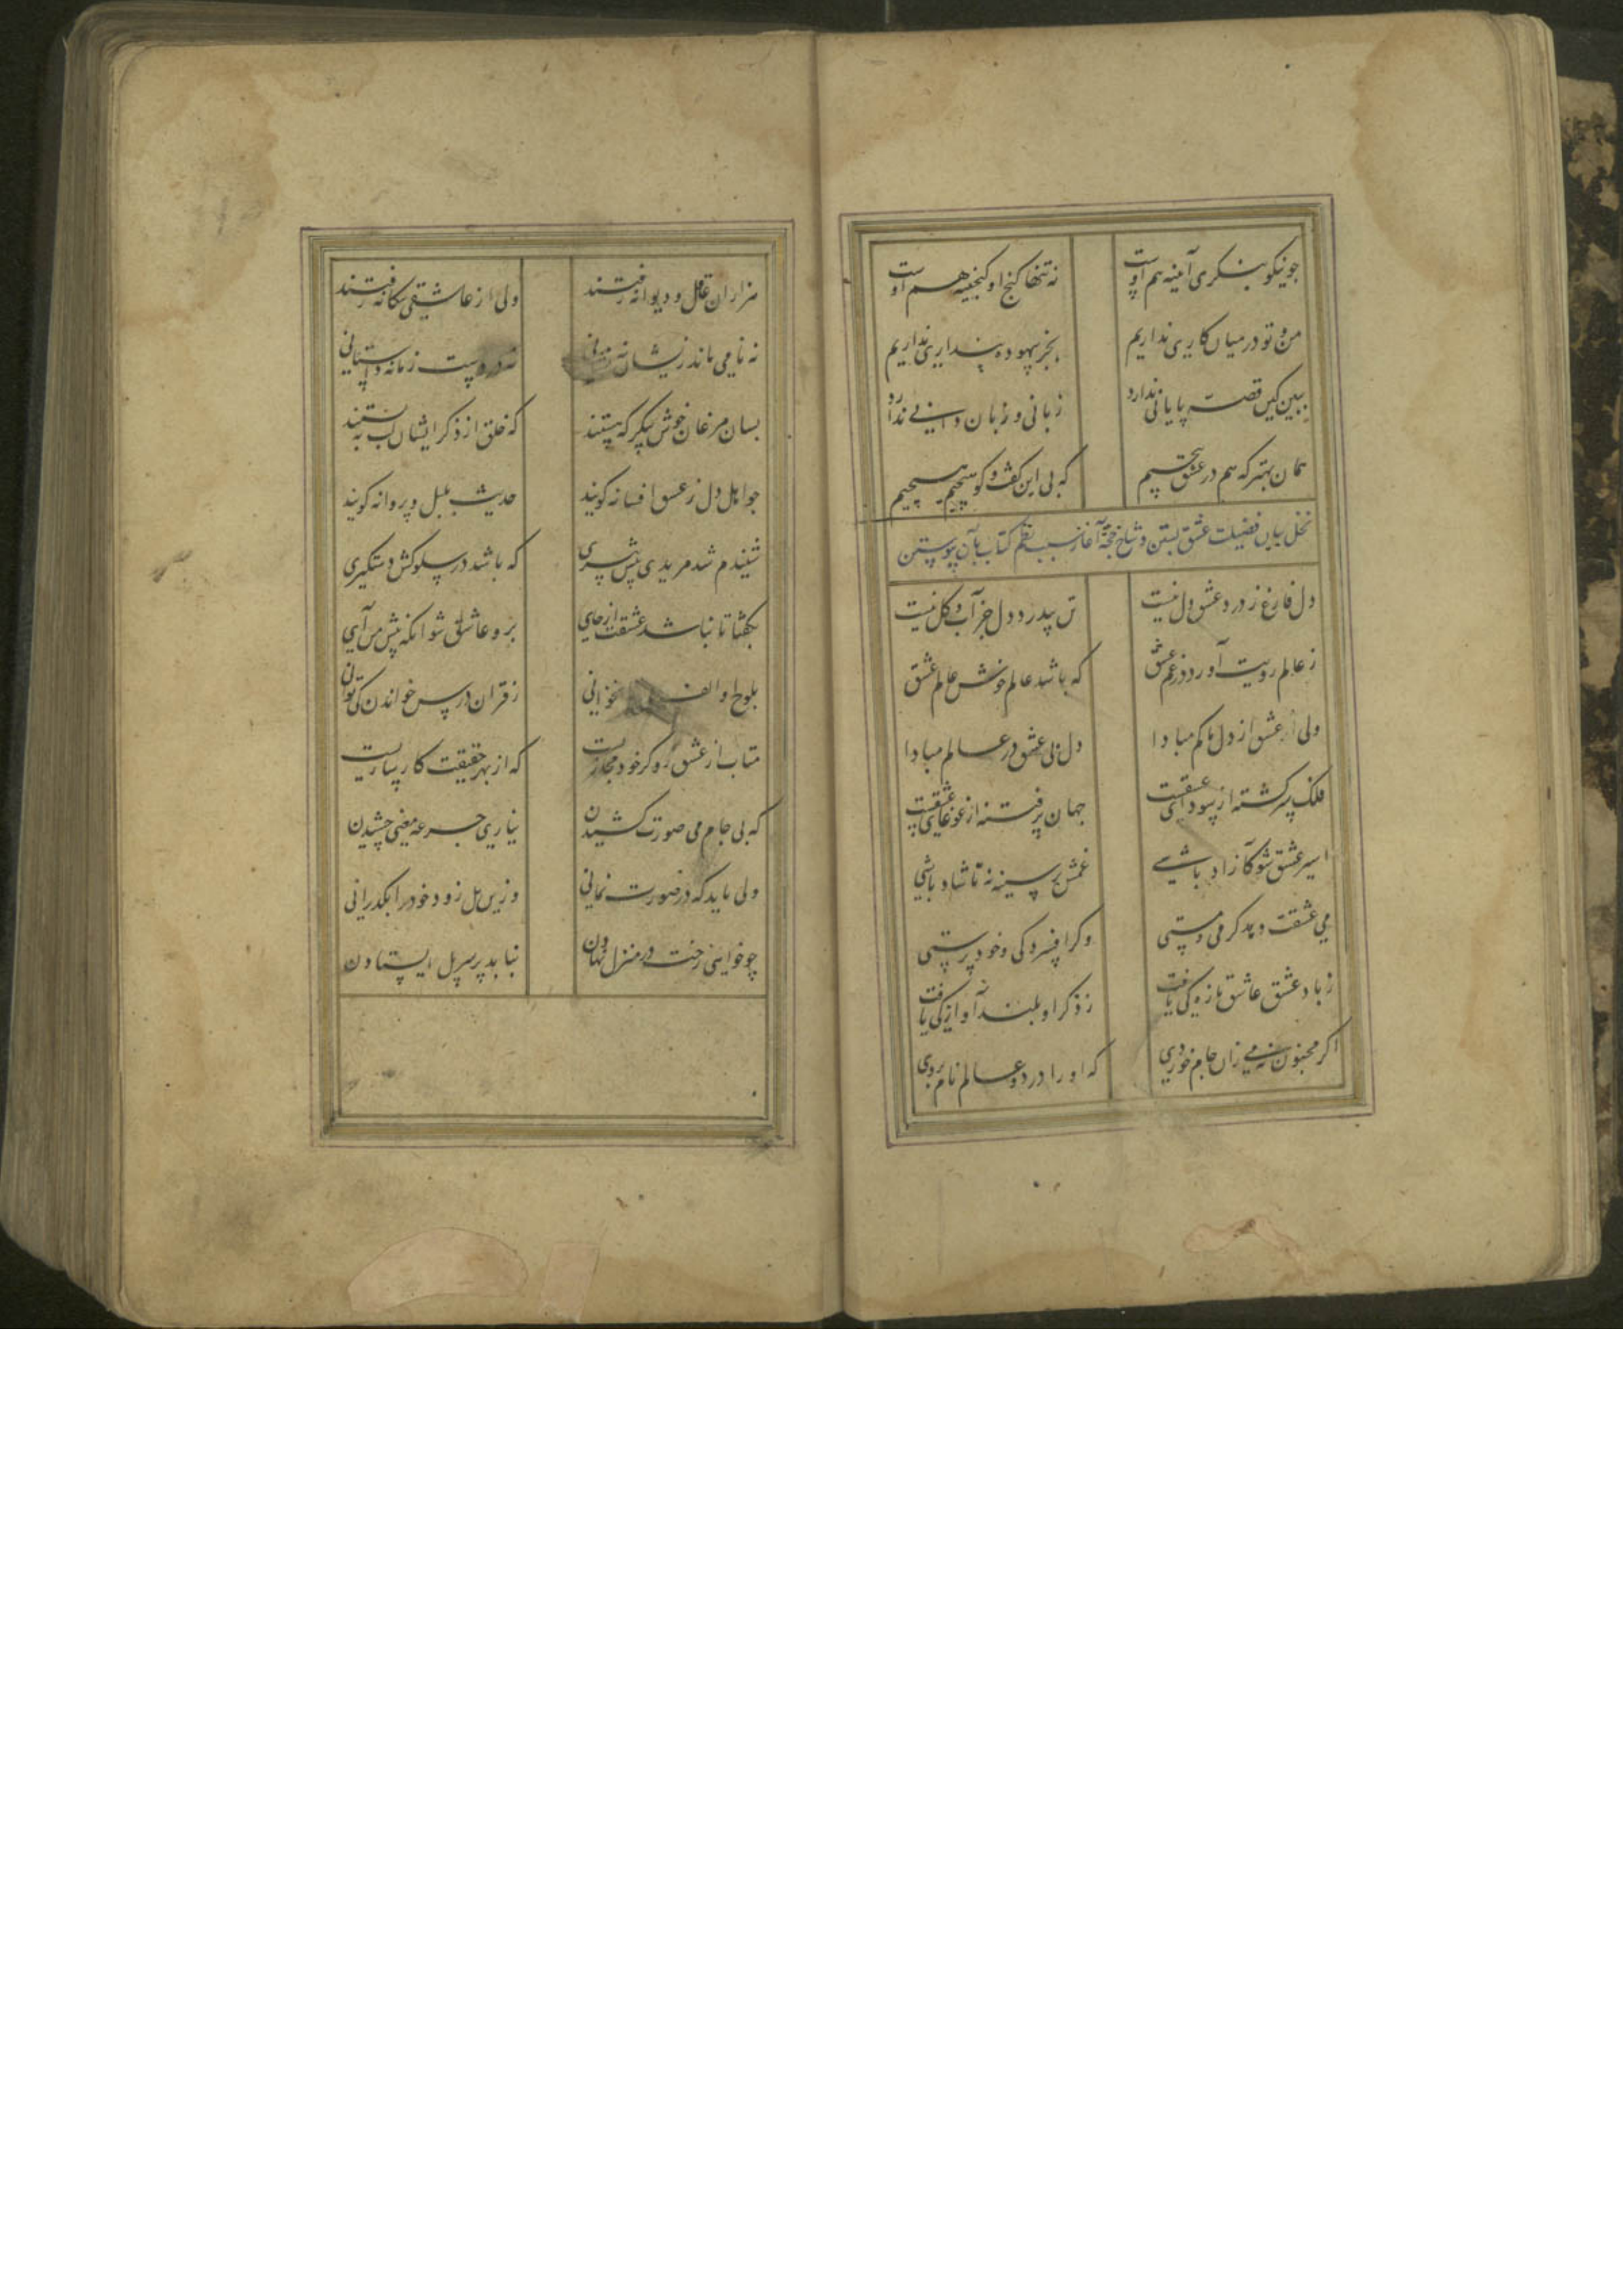 چو نیکو بنگری آیینه هم اوست نه تنها گنج او گنجینه هم اوست
من و تو در میان کاری نداریم بجز بیهوده پنداری نداریم
ببین کین قصه پایانی ندارد زبانی و زبان دانی ندارد
همان بهتر که هم در عشق پیچیم که بی این گفت و گو هیچیم هیچیم
نخل بیان فضیلت عشق بستن و شاخچه آغاز سبب نظم کتاب بآن پیوستن
دل فارغ ز درد عشق دل نیست تن بی درد دل جز آب و گل نیست
ز عالم رویت آور در غم عشق که باشد عالم خوش عالم عشق
ولی از عشق از دل ها کم مبادا دل بی عشق در عالم مبادا
فلک سرگشته از سودای عشقست جهان پر فتنه از غوغای عشقست
اسیر عشق شو کآزاد باشی غمش بر سینه نه تا شاد باشی
می عشقت دهد گرمی و مستی دگر افسردگی و خود پرستی
ز باد عشق عاشق تازگی یافت ز ذکر او بلند آوازگی یافت
اگر مجنون نه می زان جام خوردی که او را در دو عالم نام بردی
هزاران عاقل و دیوانه رفتند ولی از عاشقی بیگانه رفتند
نه نامی ماند زیشان نه نشانی نه در دست زمانه داستانی
بسان مرغان خوش پیکر که هستند که خلق از ذکر ایشان لب ببستند
چو اهل دل ز عشق افسانه گویند حدیث بلبل و پروانه گویند
شنیدم شد مریدی پیش پیری که باشد در سلوکش دستگیری
بگفتا تا نباشد عشقت از جای برو عاشق شو آنگه پیش من آی
بلوح او الف نخوانی ز قرآن درس خواندن کی توانی
متاب از عشق رو گر خود مجازیست که از بهر حقیقت کارسازیست
که بی جام می صورت کشیدن نیاری جرعه معنی چشیدن
ولی باید که در صورت نمانی وزین پل زود خود را بگذرانی
چو خواهی رخت در منزل نهادن نباید بر سر پل ایستادن